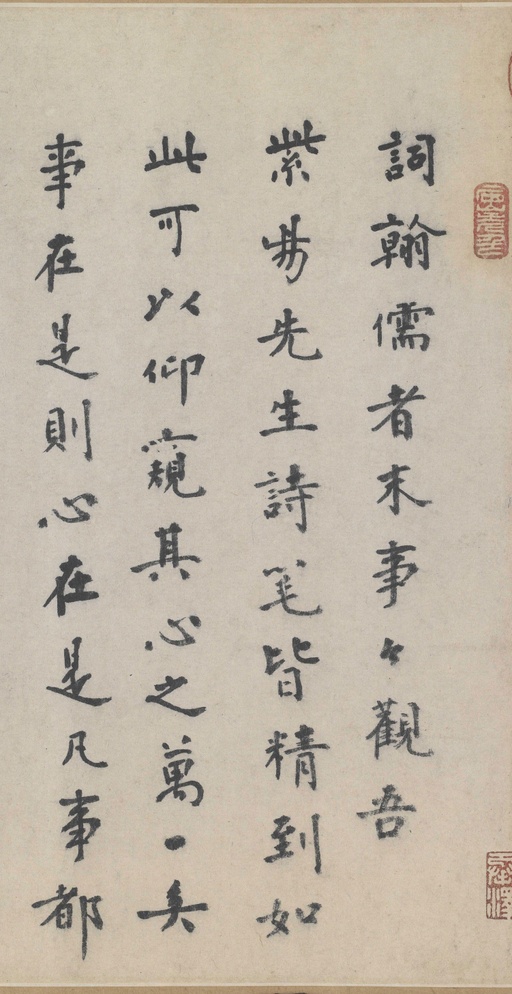 詞翰儒者末事々觀吾
紫昜先生詩笔皆精到如
此可以仰窺其心之萬一矣
事在是則心在是凡事都